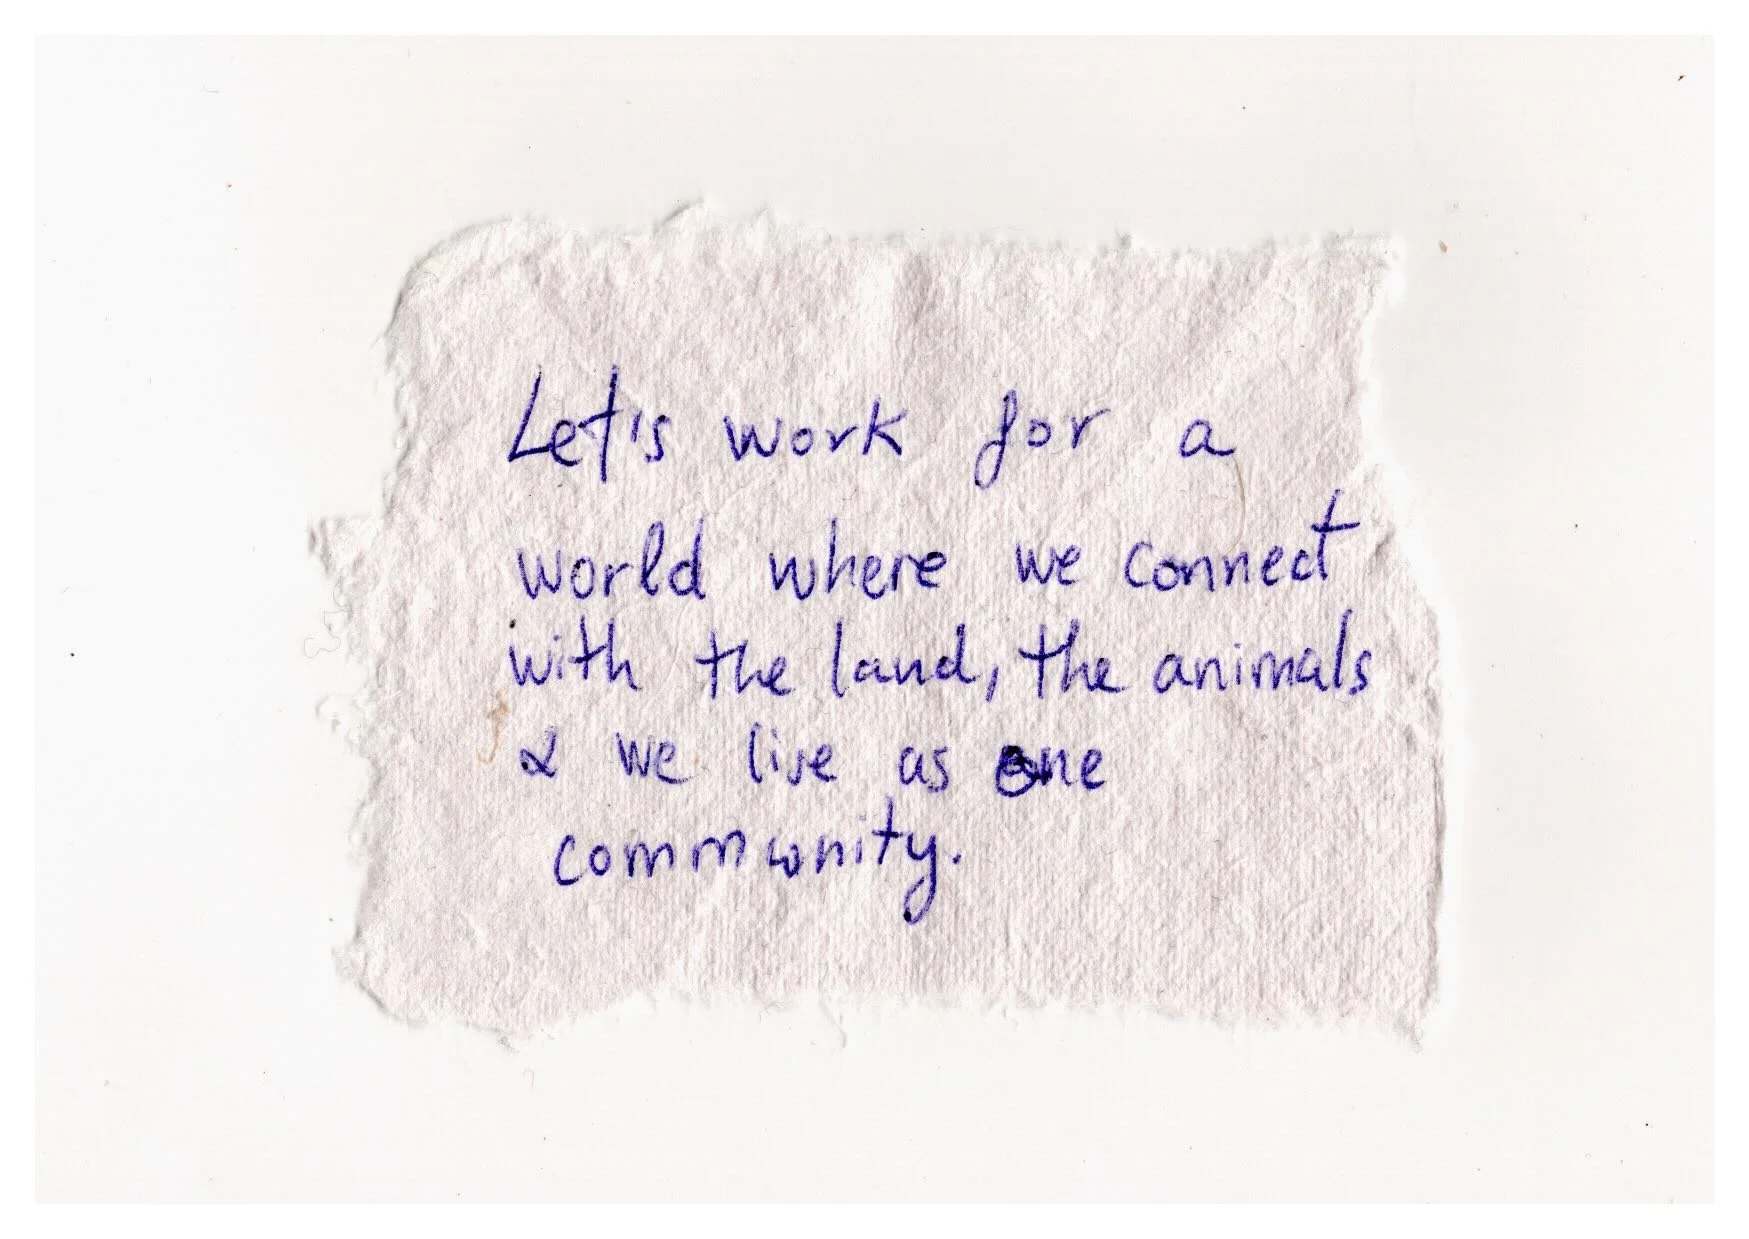 Let's work for a
world where we connect
with the land, the animals
& we live as one
community.